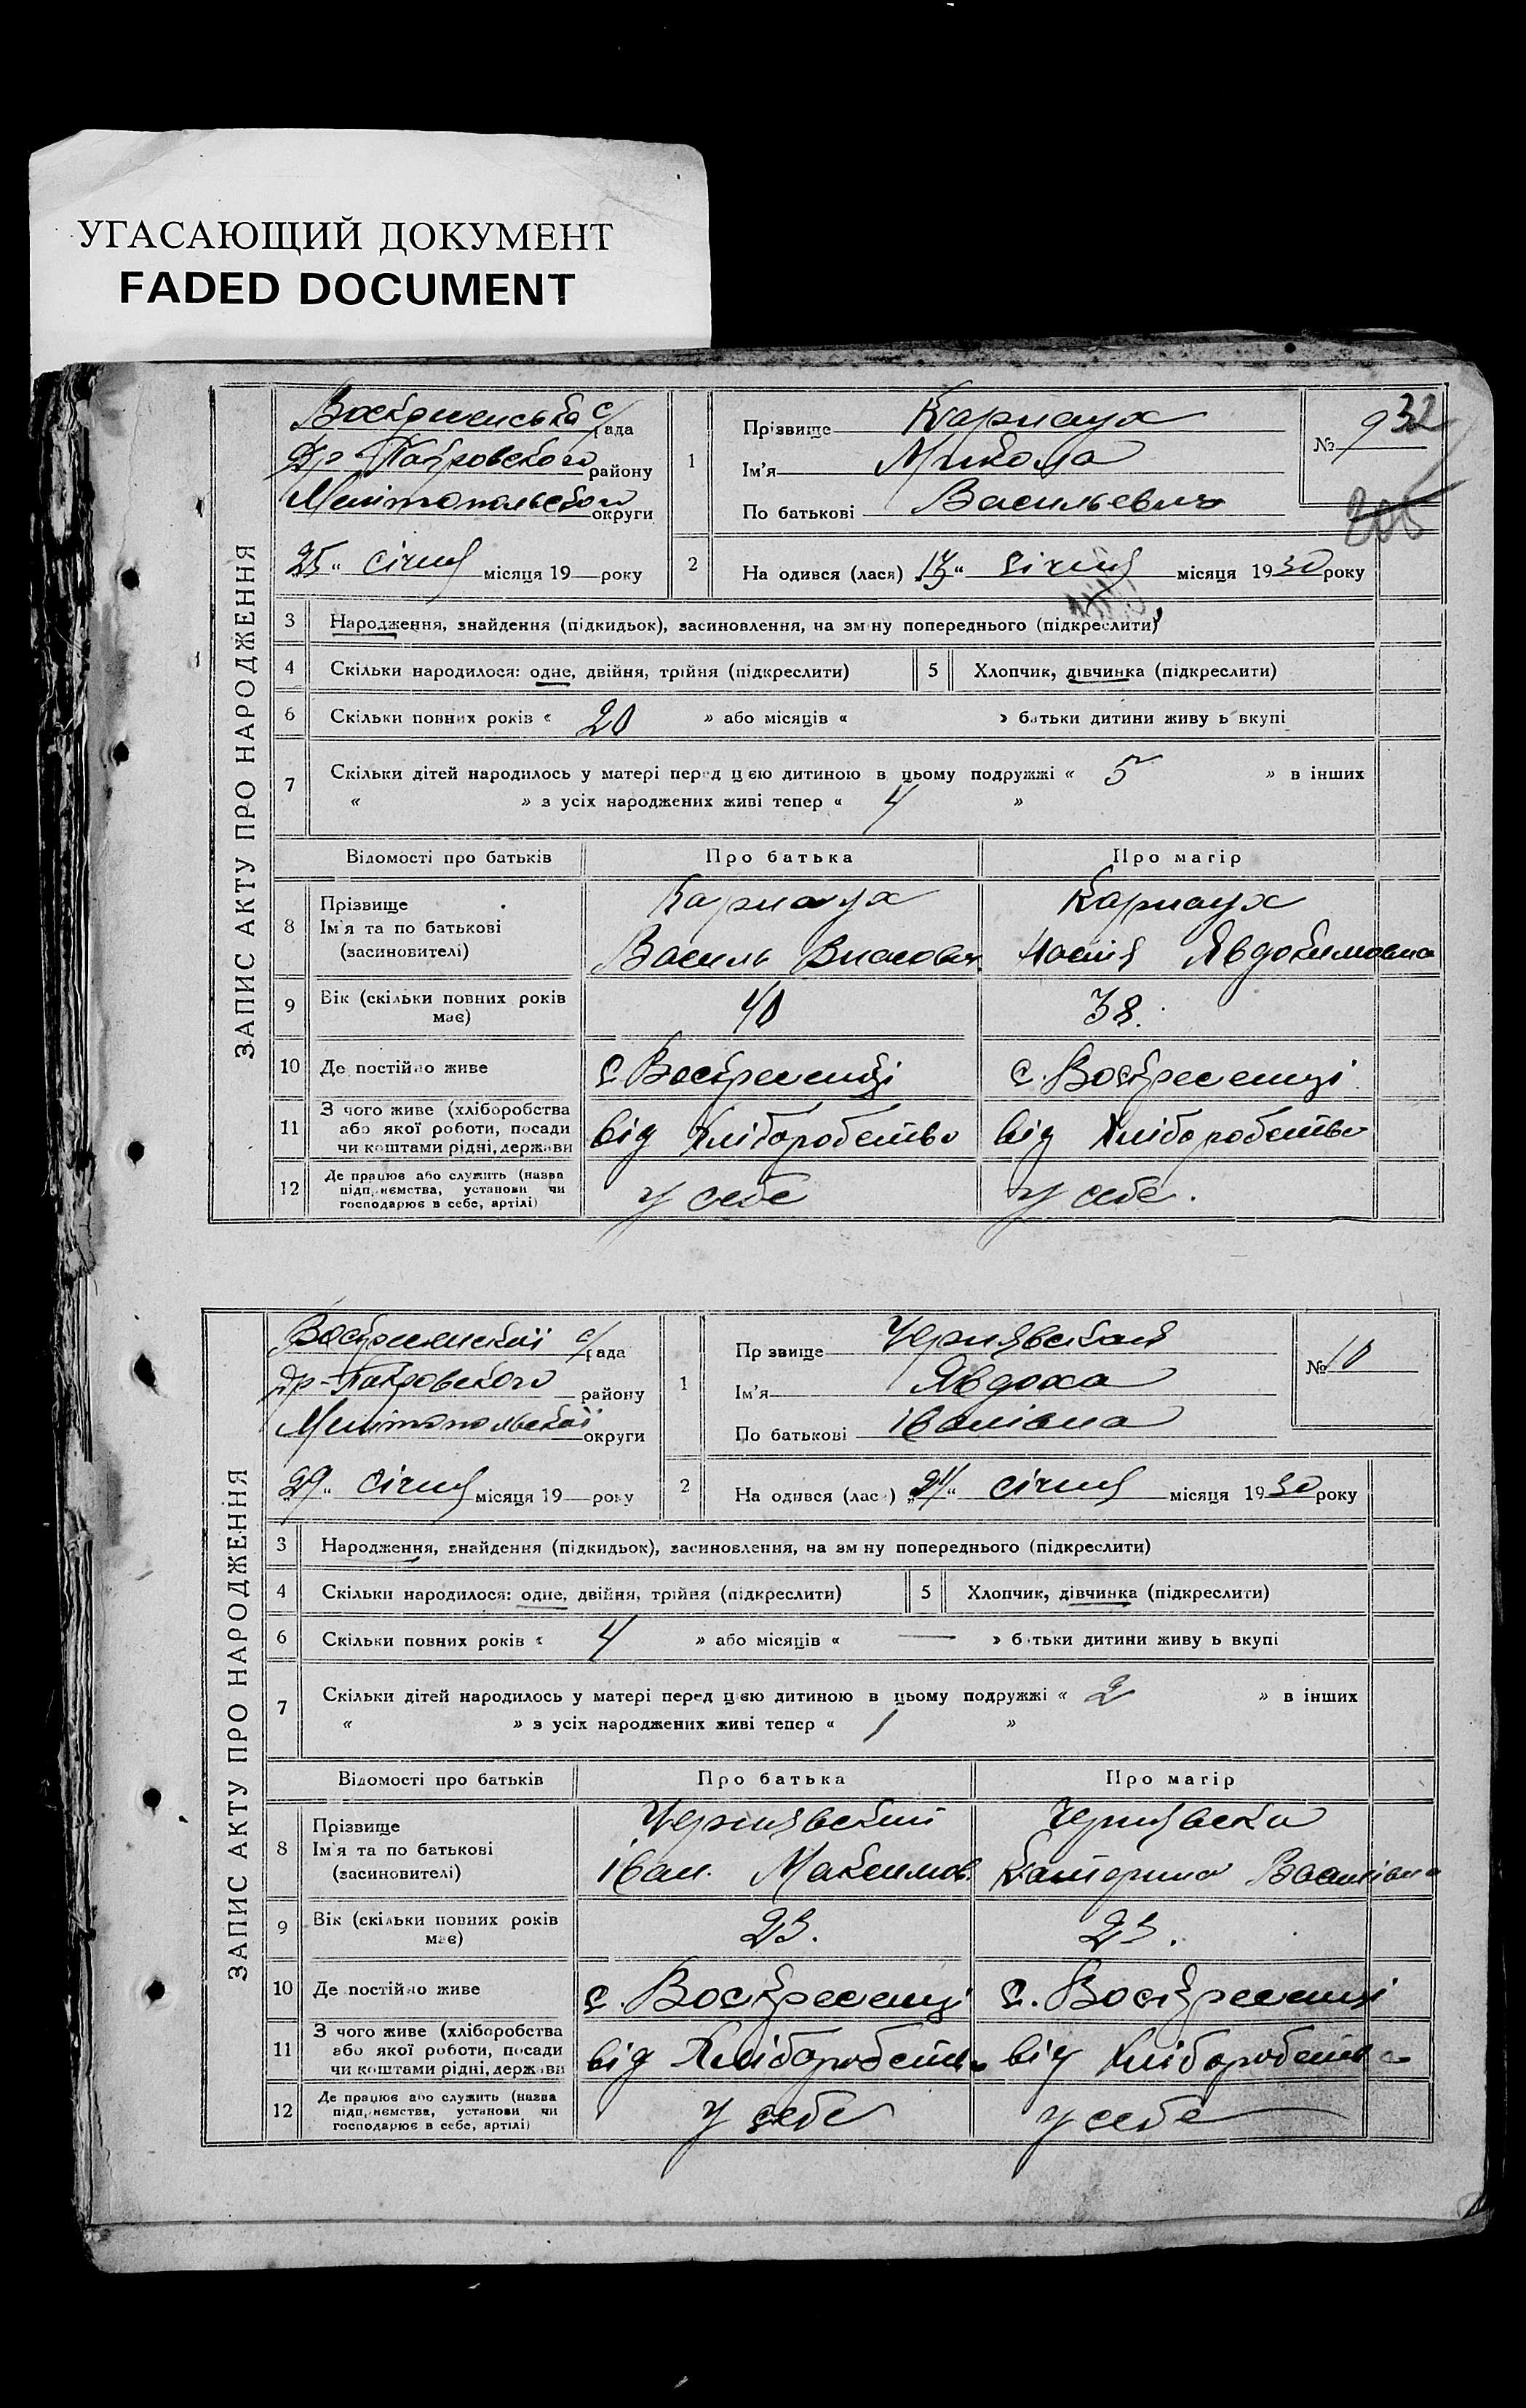 УГАСАЮЩИЙ ДОКУМЕНТ
FADED DOCUMENT
ЗАПИС АКТУ ПРО НАРОДЖЕННЯ
с/рада
Др-Покровского району
Мелітопольского округи
"25" січня місяця 19 року
1
Прізвище Карнаух
Ім'я Микола
По батькові Васильевич
№ 9
32
2
На одився (лася) "17" Січня місяця 1930 року
3 Народження, знайдення (підкидьок), засиновлення, на зм ну попереднього (підкреслити)
4 Скільки народилося: одне, двійня, трійня (підкреслити) 5 Хлопчик, дівчинка (підкреслити)
6 Скільки повних років « 20 » або місяців « » батьки дитини живу ь вкупі
7 Скільки дітей народилось у матері перед цією дитиною в цьому подружжі « 5 » в інших
« » з усіх народжених живі тепер « 4 »
Відомості про батьків Про батька Про матір
8 Прізвище
Ім'я та по батькові
(засиновителі)
Карнаух Карнаух
Василь Власович Явдокимовна
9 Вік (скільки повних років
має) 40 38.
10 Де постійно живе с. Воскресенці с. Воскресенці
11 З чого живе (хліборобства
або якої роботи, посади
чи коштами рідні, держави
від Хліборобства від Хліборобства
12 Де працює або служить (назва
підприємства, установи чи
господарює в себе, артілі)
у себе у себе.
ЗАПИС АКТУ ПРО НАРОДЖЕННЯ
с/рада
Др-Покровского району
Мелітопольскої округи
"29" Січня місяця 19 року
1
Пр звище Чернявская
Ім'я Явдоха
По батькові Іванівна
№ 10
2
На одився (лас ) "21" січня місяця 1930 року
3 Народження, знайдення (підкидьок), засиновлення, на зм ну попереднього (підкреслити)
4 Скільки народилося: одне, двійня, трійня (підкреслити) 5 Хлопчик, дівчинка (підкреслити)
6 Скільки повних років « 4 » або місяців « — » б тьки дитини живу ь вкупі
7 Скільки дітей народилось у матері перед цією дитиною в цьому подружжі « 2 » в інших
« » з усіх народжених живі тепер « 1 »
Відомості про батьків Про батька Про матір
8 Прізвище
Ім'я та по батькові
(засиновителі)
Чернявский Чернявска
Іван. Максимов. Катерина Василівна
9 Вік (скільки повних років
має) 23. 23.
10 Де постійно живе с. Воскресенці с. Воскресенці
11 З чого живе (хліборобства
або якої роботи, посади
чи коштами рідні, держави
від Хліборобства від Хліборобства
12 Де працює або служить (назва
підприємства, установи чи
господарює в себе, артілі)
у себе у себе